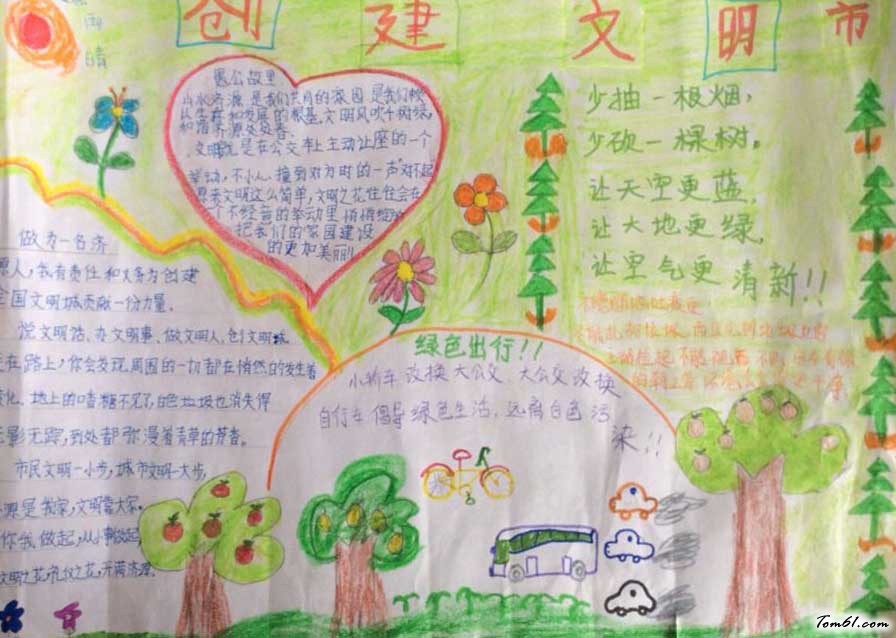 创建文明市
雨
晴
愚公故里
山水济源 是我们共同的家园 是我们赖
以生存和发展的根基,文明风吹千树绿,
和谐济源处处春。
文明就是在公交车上主动让座的一个
举动,不小心撞到对方时的一声"对不起"
原来文明这么简单,文明之花往往会在
个不经意的举动里悄悄绽放
把我们的家园建设
的更加美丽!
少抽一根烟,
少砍一棵树。
让天空更蓝,
让大地更绿,
让空气更清新!!
做为一名济
源人,我有责任和义务为创建
全国文明城贡献一份力量。
说文明话、办文明事、做文明人,创文明城
走在路上,你会发现周围的一切都在悄然的发生着
变化、地上的口香糖不见了,白色垃圾也消失得
无影无踪,到处都弥漫着青草的芳香。
市民文明一小步,城市文明一大步,
济源是我家,文明靠大家。
你我做起,从小事做起
文明之花,礼仪之花,开满济源
绿色出行!!
小轿车改换大公交、大公交改换
自行车倡导绿色生活,远离白色污
染!!
Tom61.com